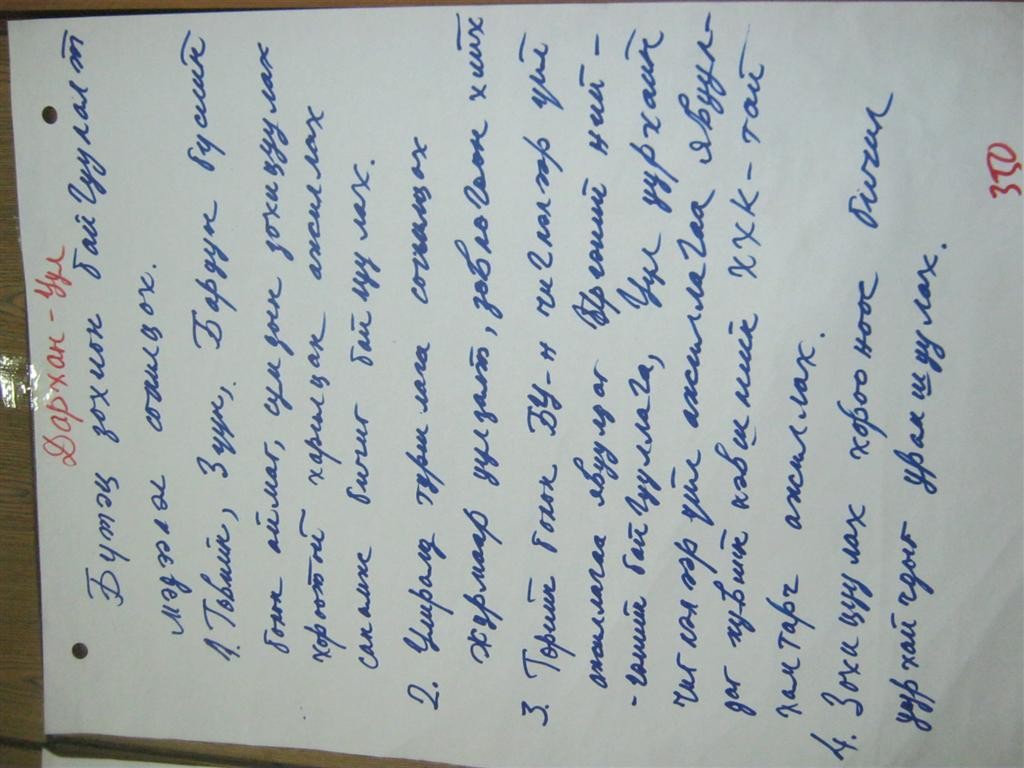 Дархан-Уул
Бүтэц зохион байгуулалт
мэдлэг солилцох.
1. Төвийн, Зүүн, Баруун бүсийн
болон аймаг, сумдын зохицуулах
хороотой харилцан ажиллах
санамж бичиг байгуулах.
2. Уулзалт туршлага солилцох
журмаар уулзалт, зөвлөгөөн хийх
3. Төрийн болон БУ-н чиглэлээр үйл
ажиллагаа явуулдаг Төрийн ний-
-гмийн байгууллага, Уул уурхайн
чиглэлээр үйл ажиллагаа явуул-
даг хувийн хэвшлийн ХХК-тай
хамтарч ажиллах.
4. Зохицуулах хорооноос бичил
уурхайчдыг уралшуулах.
350